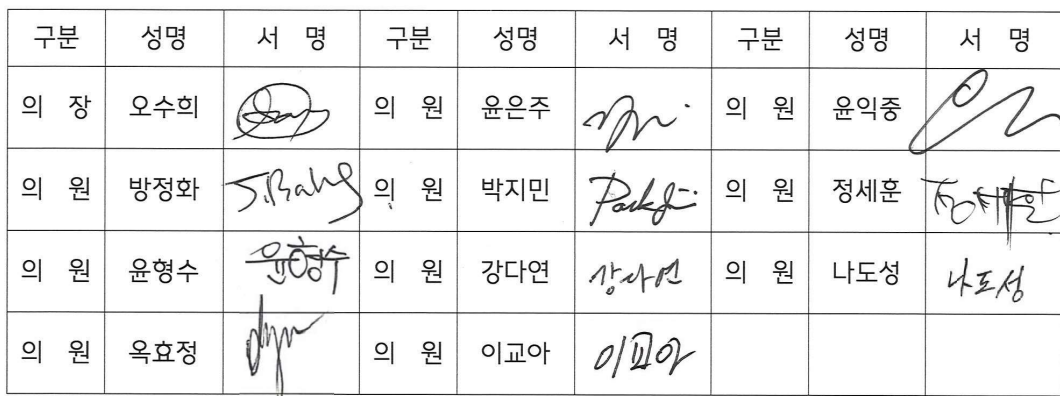 구분 성명 서 명 구분 성명 서 명 구분 성명 서 명
의 장 오수희 의 원 윤은주 의 원 윤익중
의 원 방정화 J.Bang 의 원 박지민 Parkji 의 원 정세훈 정세훈
의 원 윤형수 윤형수 의 원 강다연 강다연 의 원 나도성 나도성
의 원 옥효정 의 원 이교아 이교아